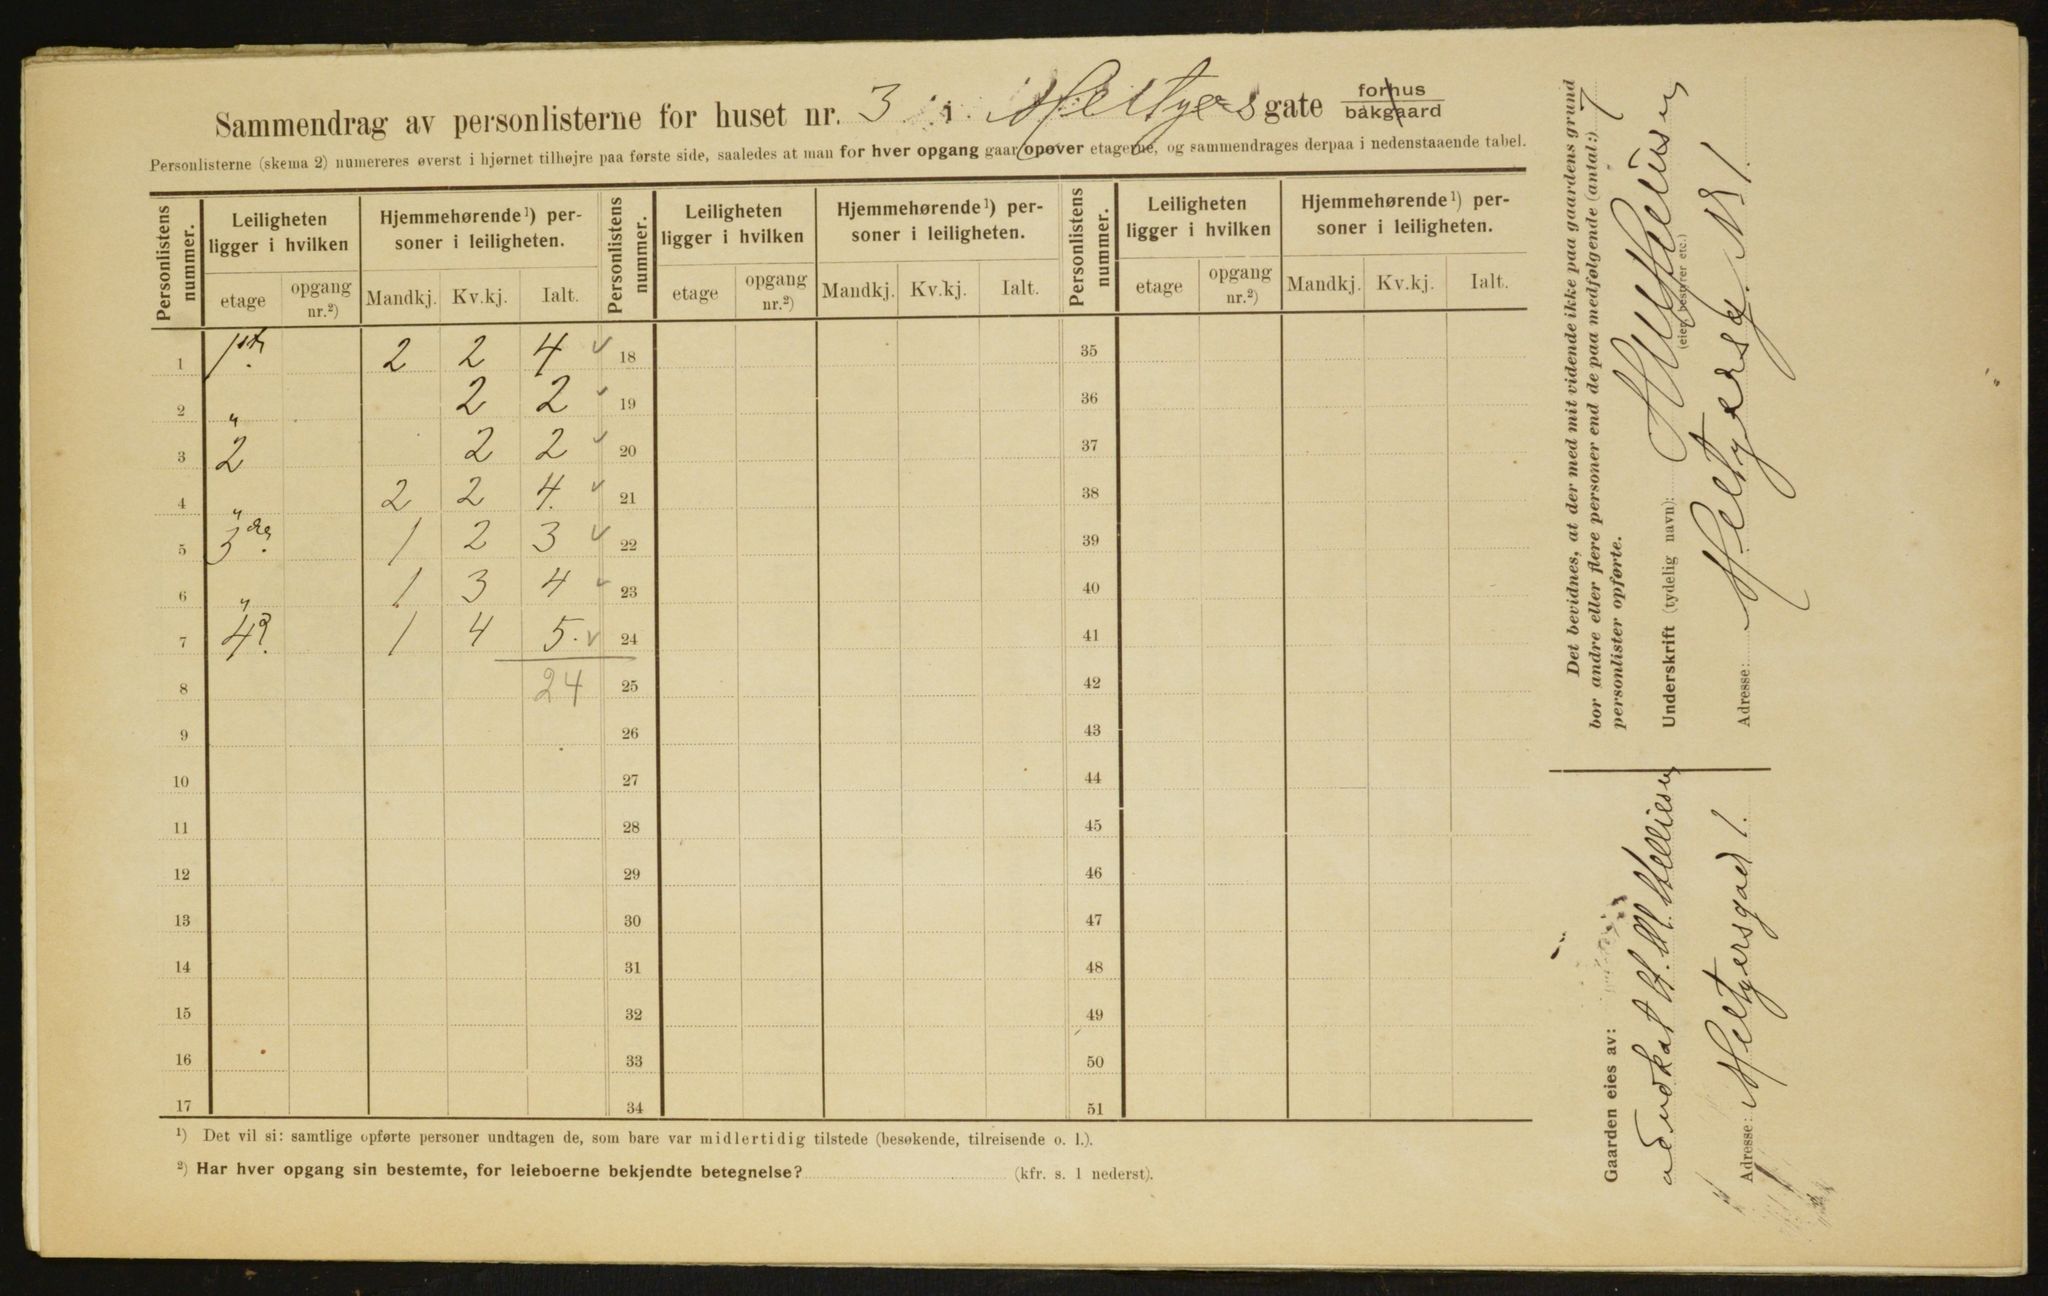 Sammendrag av personlisterne for huset nr. 3 i Meltzers gate forhus bakgaard
Personlisterne (skema 2) numereres øverst i hjørnet tilhøjre paa første side, saaledes at man for hver opgang gaar opover etagerne, og sammendrages derpaa i nedenstaaende tabel.
Personlistens nummer. Leiligheten ligger i hvilken Hjemmehørende¹) personer i leiligheten. Personlistens nummer. Leiligheten ligger i hvilken Hjemmehørende¹) personer i leiligheten. Personlistens nummer. Leiligheten ligger i hvilken Hjemmehørende¹) personer i leiligheten.
etage opgang nr.²) Mandkj. Kv.kj. Ialt. etage opgang nr.²) Mandkj. Kv.kj. Ialt. etage opgang nr.²) Mandkj. Kv.kj. Ialt.
1 1ste. 2 2 4 ✓ 18 35
2 " 2 2 ✓ 19 36
3 2 2 2 ✓ 20 37
4 " 2 2 4. ✓ 21 38
5 3de. 1 2 3 ✓ 22 39
6 " 1 3 4 ✓ 23 40
7 4de. 1 4 5. ✓ 24 41
8 24 25 42
9 26 43
10 27 44
11 28 45
12 29 46
13 30 47
14 31 48
15 32 49
16 33 50
17 34 51
¹) Det vil si: samtlige opførte personer undtagen de, som bare var midlertidig tilstede (besøkende, tilreisende o. l.).
²) Har hver opgang sin bestemte, for leieboerne bekjendte betegnelse? (kfr. s. 1 nederst).
Det bevidnes, at der med mit vidende ikke paa gaardens grund
bor andre eller flere personer end de paa medfølgende (antal:) 7
personlister opførte.
Underskrift (tydelig navn):
(eier, bestyrer etc.)
Adresse: Meltzersg. No 1.
Gaarden eies av:
advokat
Adresse: Meltzersgad 1.